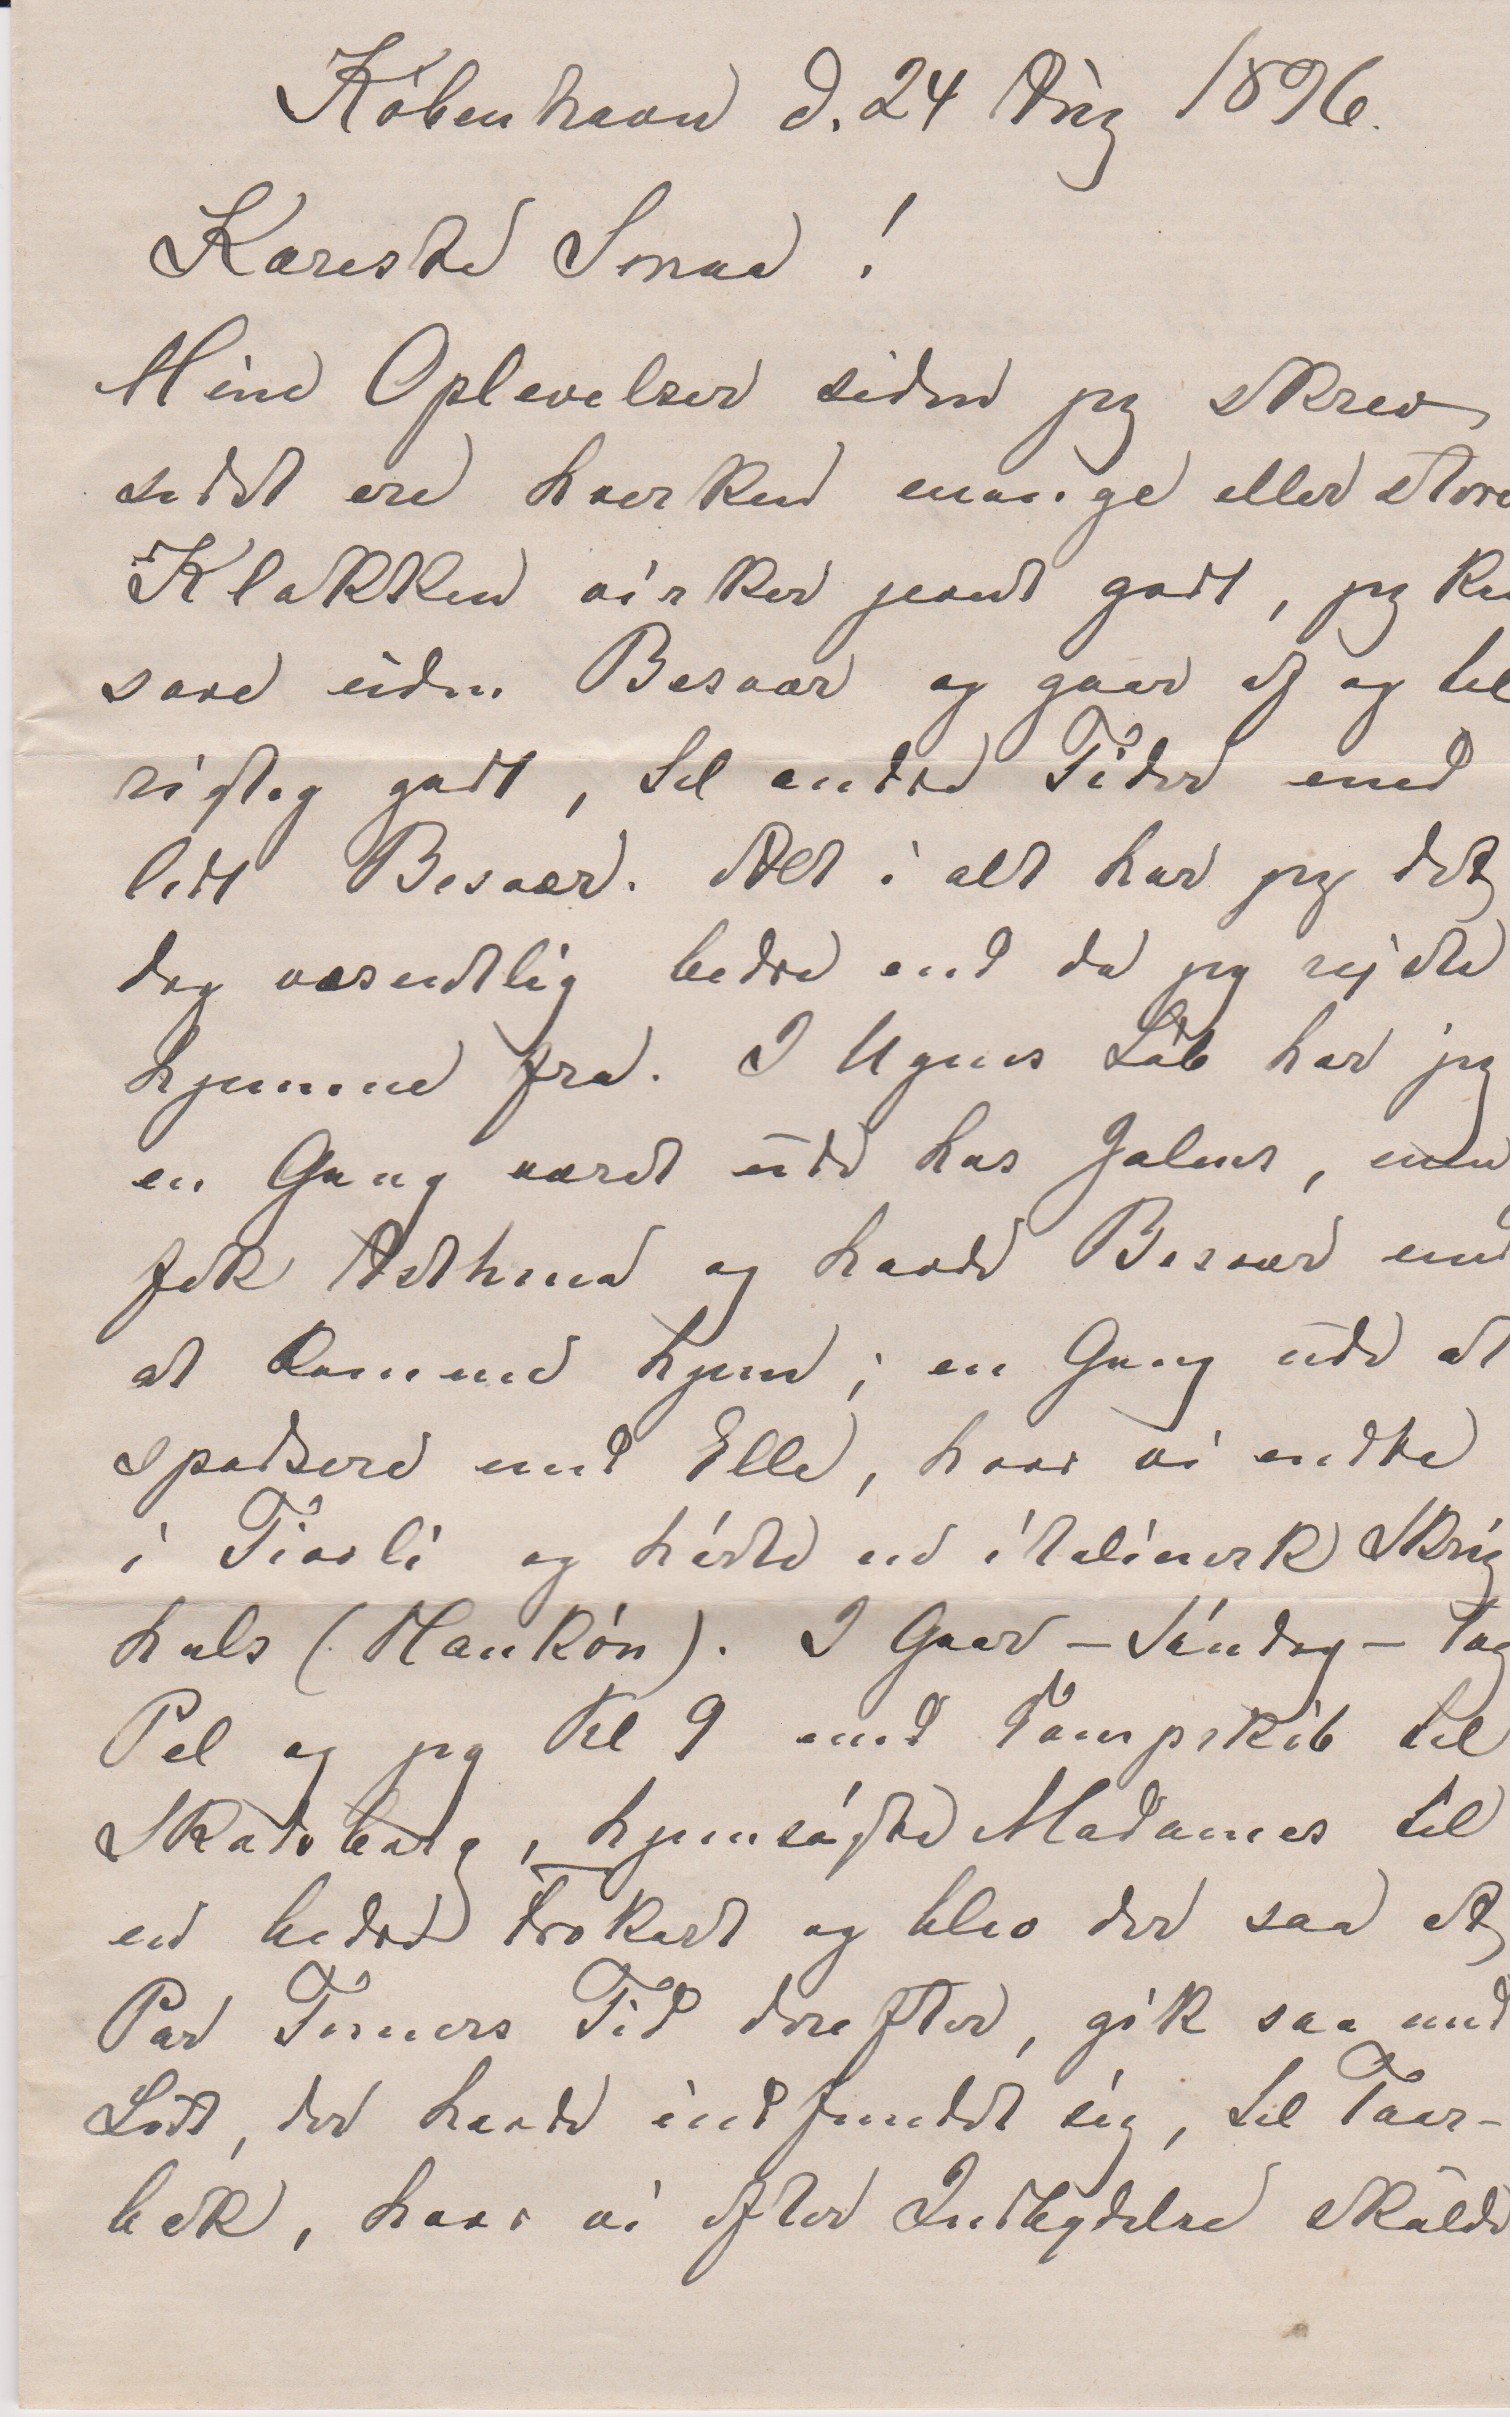 København d. 24 Aug 1896.
Kæreste Smaa!
Mine Oplevelser siden jeg skrev
sidst ere hverken mange eller store
Klokken virker jevnt godt, jeg kan
sove uden Besvær og gaar af og til
rigtig godt, til andre Tider med
lidt Besvær. Alt i alt har jeg det
dog væsentlig bedre end da jeg rejste
hjemme fra. I Ugens Løb har jeg
en Gang været ude hos Galens, men
fik Asthma og havde Besvær med
at komme hjem; en Gang ude at
spadsere med Elle, hvor vi endte
i Tivoli og hørte en italiensk Skrig
hals (Mankøn). I Gaar – Søndag – tog
Pal og jeg Kl 9 med Dampskib til
Skodsborg, hjemsøgte Madames til
en bedre Frokost og blev der saa et
Par Timers Tid derefter, gik saa med
Ludt, der havde indfundet sig, til Taar-
bæk, hvor vi efter Indbydelse skulde